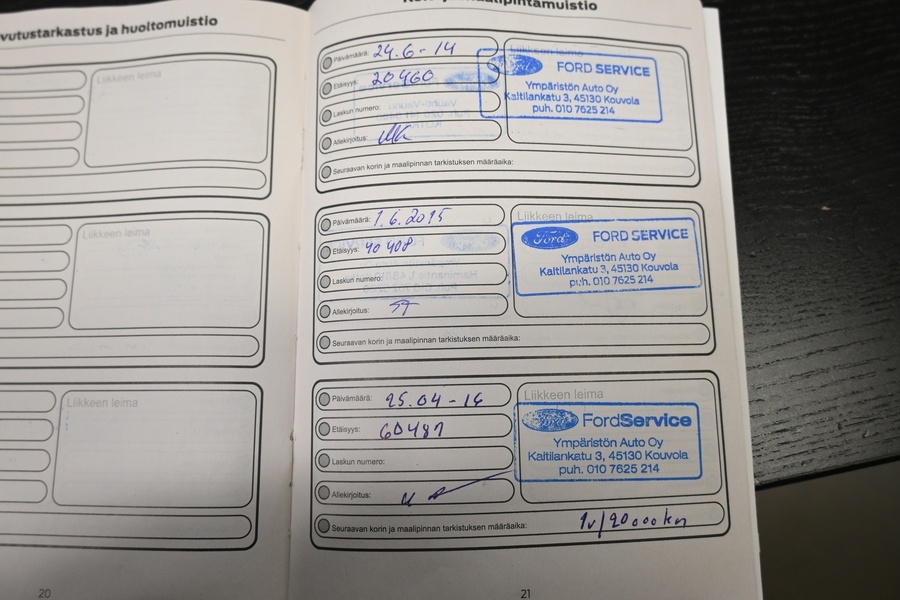 vutustarkastus ja huoltomuistio
Liikkeen leima
Liikkeen leima
Liikkeen leima
20
Päivämäärä: 24.6-14
Etäisyys: 20460
Laskun numero:
Allekirjoitus:
Liikkeen leima
Ford
FORD SERVICE
Ympäristön Auto Oy
Kaitilankatu 3, 45130 Kouvola
puh. 010 7625 214
Seuraavan korin ja maalipinnan tarkistuksen määräaika:
Päivämäärä: 1.6.2015
Etäisyys: 40408
Laskun numero:
Allekirjoitus:
Liikkeen leima
Ford
FORD SERVICE
Ympäristön Auto Oy
Kaitilankatu 3, 45130 Kouvola
puh. 010 7625 214
Seuraavan korin ja maalipinnan tarkistuksen määräaika:
Päivämäärä: 25.04-16
Etäisyys: 60487
Laskun numero:
Allekirjoitus:
Liikkeen leima
Ford
FordService
Ympäristön Auto Oy
Kaitilankatu 3, 45130 Kouvola
puh. 010 7625 214
Seuraavan korin ja maalipinnan tarkistuksen määräaika: 1v/20000km
21